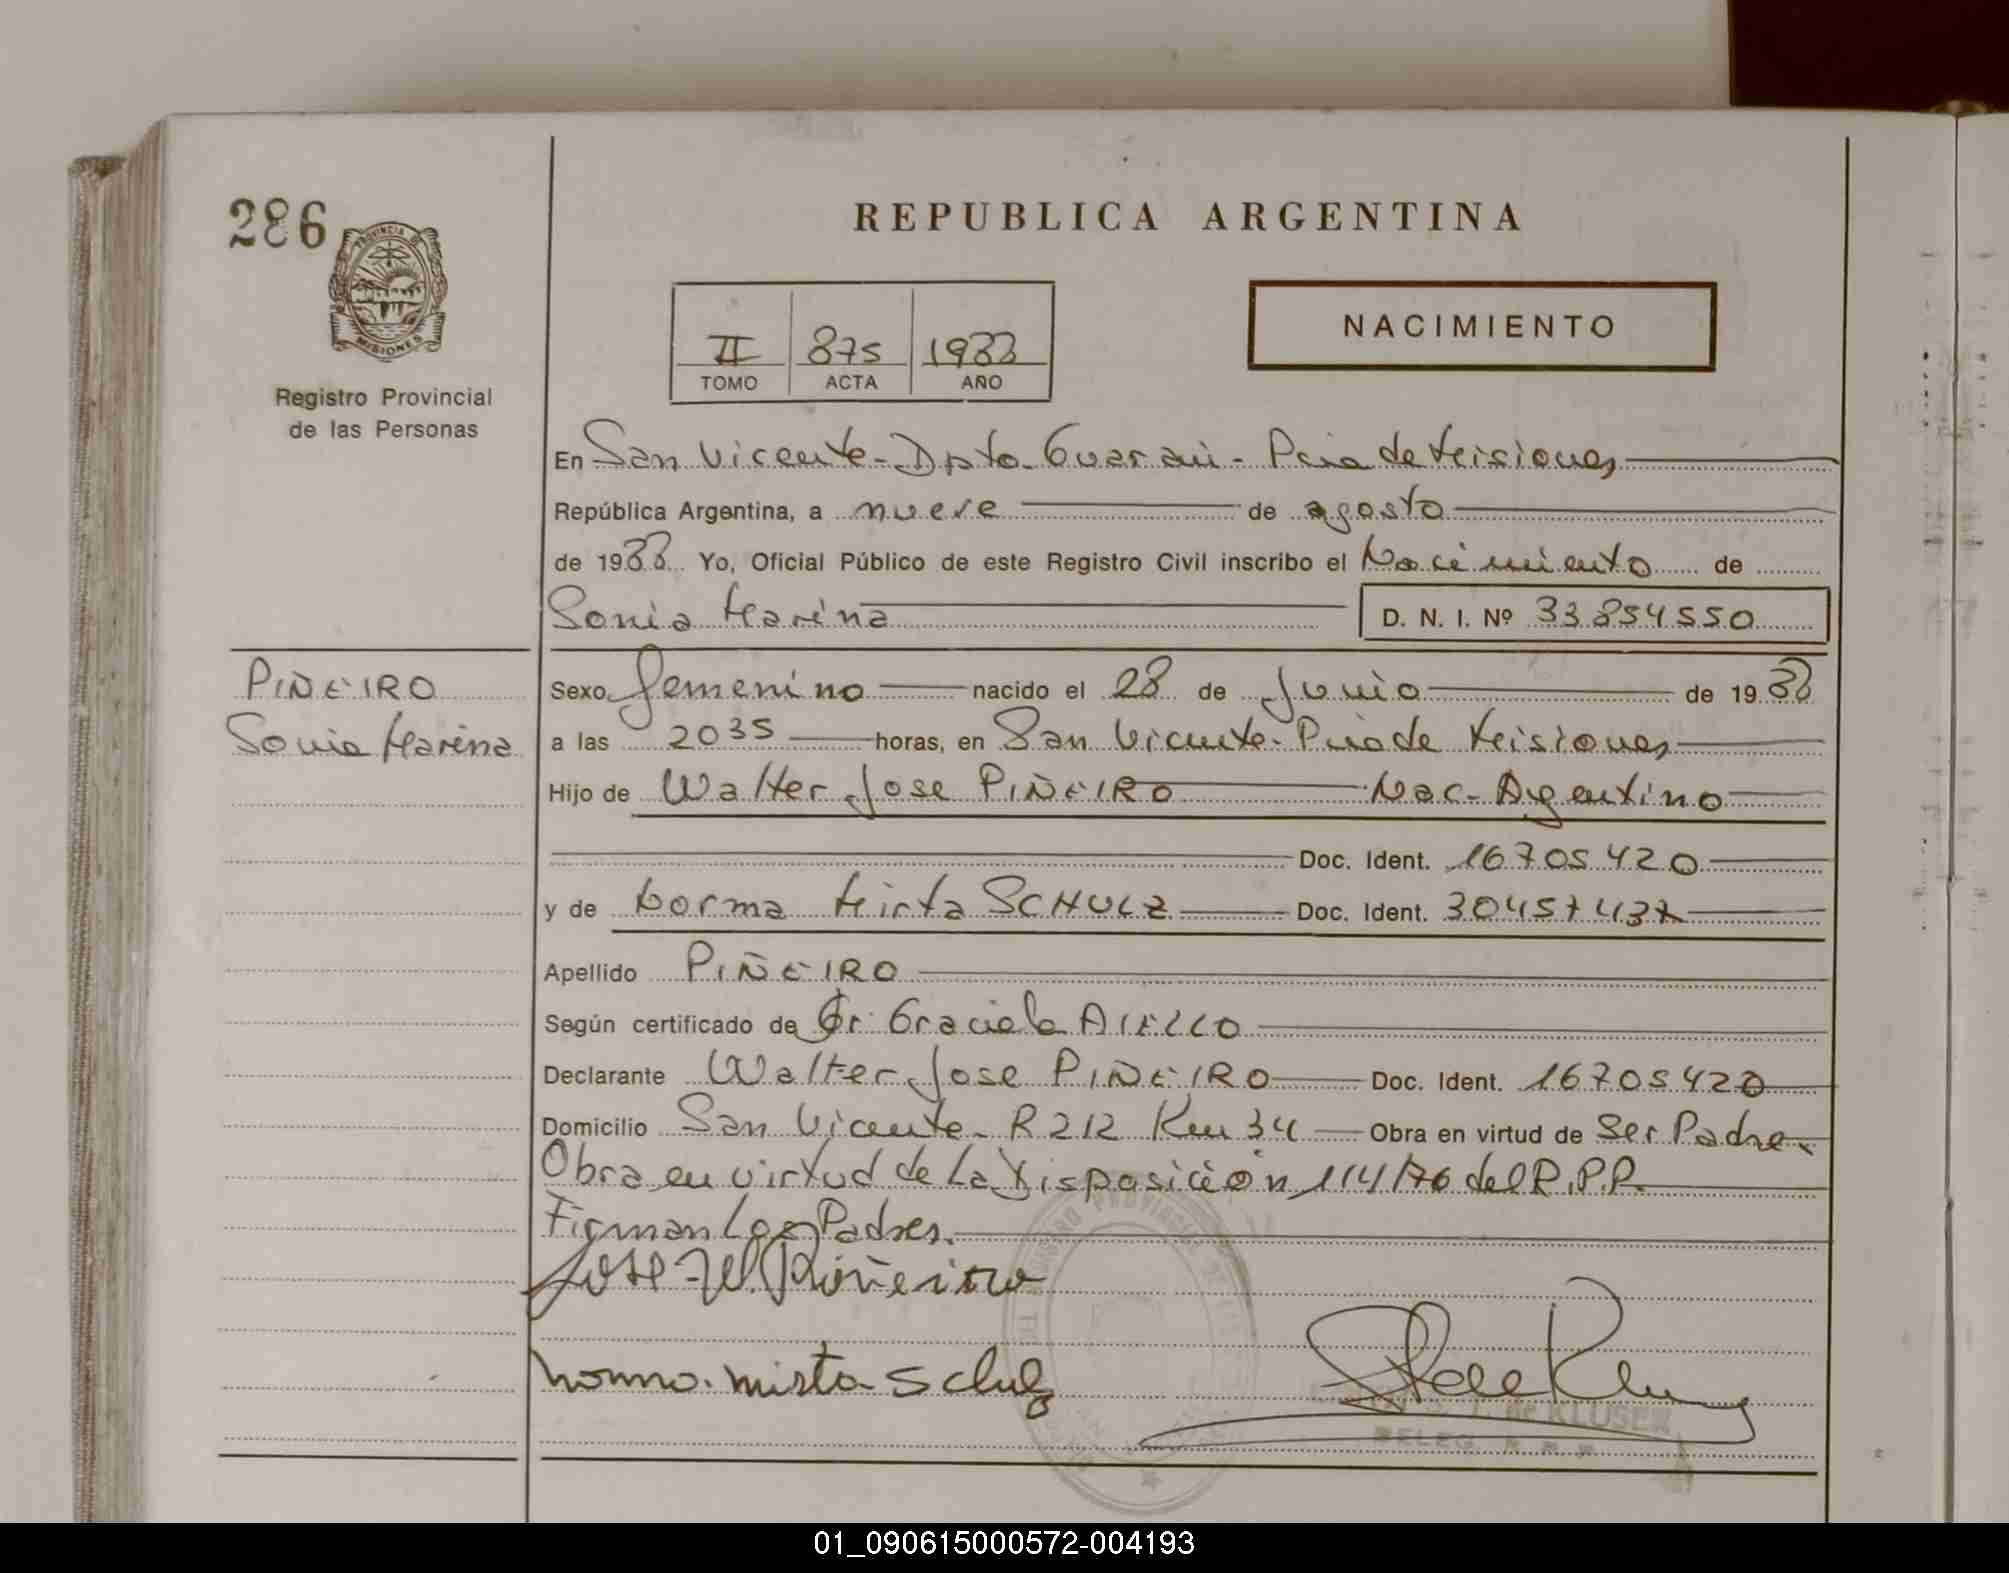 286
PROVINCIA DE
MISIONES
Registro Provincial
de las Personas
REPUBLICA ARGENTINA
II 875 1988
TOMO ACTA AÑO
NACIMIENTO
En San Vicente - Dpto. Guarani - Pcia de Misiones
República Argentina, a nueve de agosto
de 1988 Yo, Oficial Público de este Registro Civil inscribo el Nacimiento de
Sonia Marina D. N. I. Nº 33854550
PIÑEIRO
Sonia Marina
Sexo femenino nacido el 28 de Junio de 1988
a las 2035 horas, en San Vicente - Pcia de Misiones
Hijo de Walter Jose PIÑEIRO Nac - Argentino
Doc. Ident. 16705420
y de Norma Mirta SCHULZ Doc. Ident. 30457437
Apellido PIÑEIRO
Según certificado de Dr. Graciela AIELLO
Declarante Walter Jose PIÑEIRO Doc. Ident. 16705420
Domicilio San Vicente - R 212 Km 34 Obra en virtud de Ser Padre.
Obra en virtud de La Disposición 114/76 del R.P.P.
Firman Los Padres.
Jose W. Piñeiro
Norma Mirta Schulz
de KLUSER
DELEG.
01_090615000572-004193